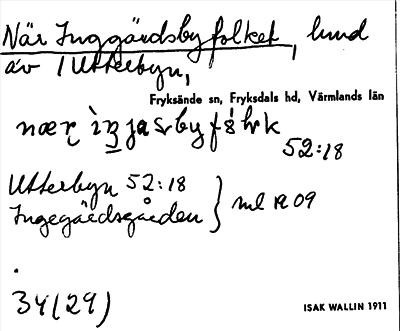 När Inggärdsbyfolket, lund
av 1 Utterbyn,
Fryksände sn, Fryksdals hd, Värmlands län
52:18
Utterbyn 52:18
Ingegärdsgården } ml 1209
34(29)
ISAK WALLIN 1911